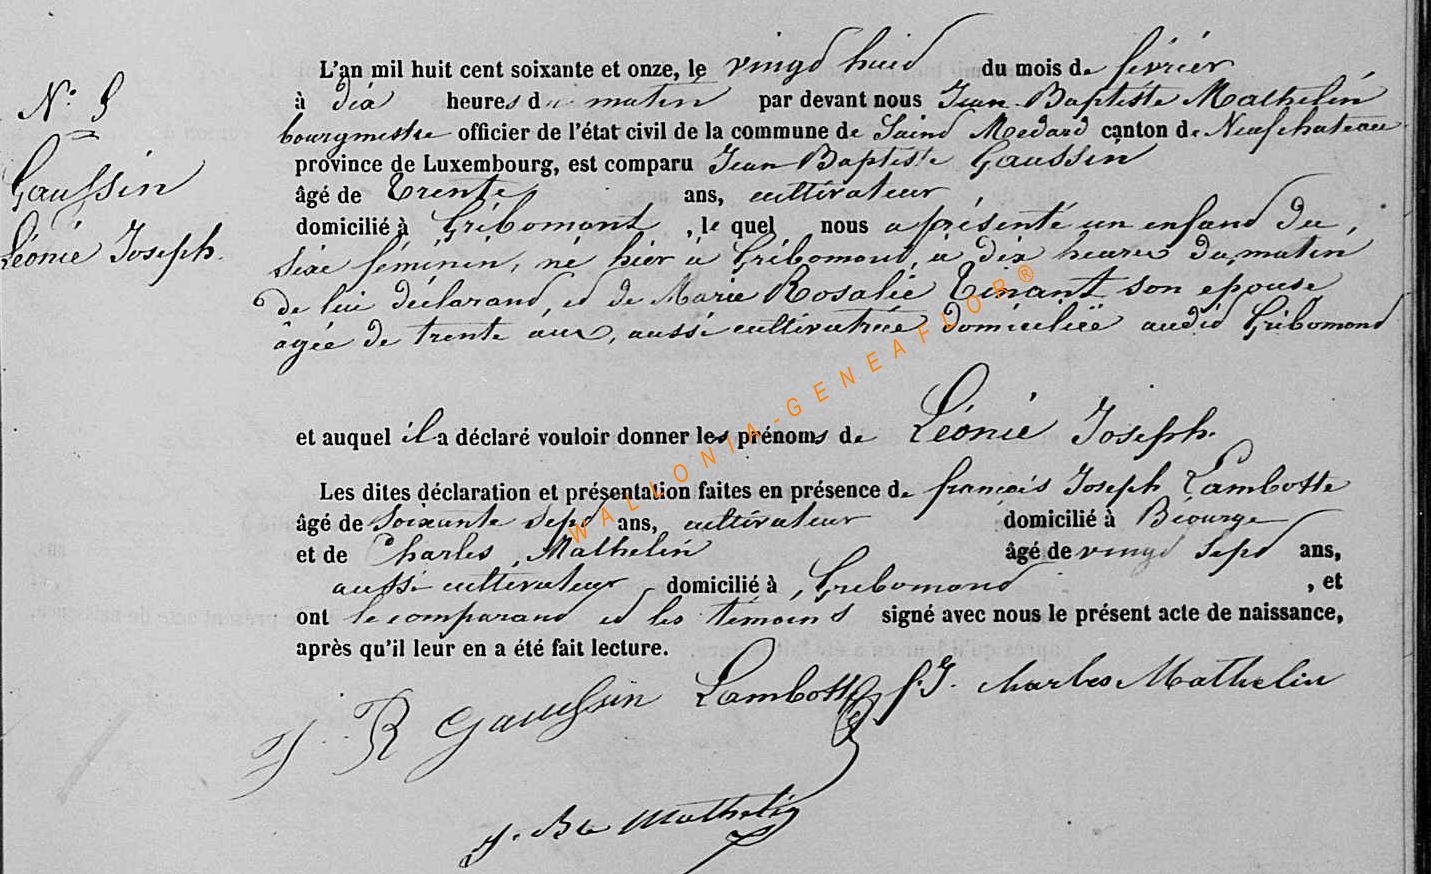 N.° 5
Gaussin
Léonie Joseph.
L'an mil huit cent soixante et onze, le vingt huit du mois de février
à dix heures du matin par devant nous Jean Baptiste Mathelin
bourgmestre officier de l'état civil de la commune de Saint Medard canton de Neufchateau
province de Luxembourg, est comparu Jean Baptiste Gaussin
âgé de trente ans, cultivateur
domicilié à Gribomont, le quel nous a présenté un enfant du
sexe féminin, né hier à Gribomont, à dix heures du matin
de lui déclarant, et de Marie Rosalie Tinant son épouse
âgée de trente ans, aussi cultivatrice domiciliée audit Gribomont
et auquel il a déclaré vouloir donner les prénoms de Léonie Joseph.
Les dites déclaration et présentation faites en présence de françois Joseph Lambotte
âgé de soixante sept ans, cultivateur domicilié à Biourge
et de Charles Mathelin âgé de vingt sept ans,
aussi cultivateur domicilié à Gribomont, et
ont le comparant et les témoins signé avec nous le présent acte de naissance,
après qu'il leur en a été fait lecture.
J. B Gaussin Lambotte f. J. charles Mathelin
J. Bte Mathelin
WALLONIA-GENEAFLOR®